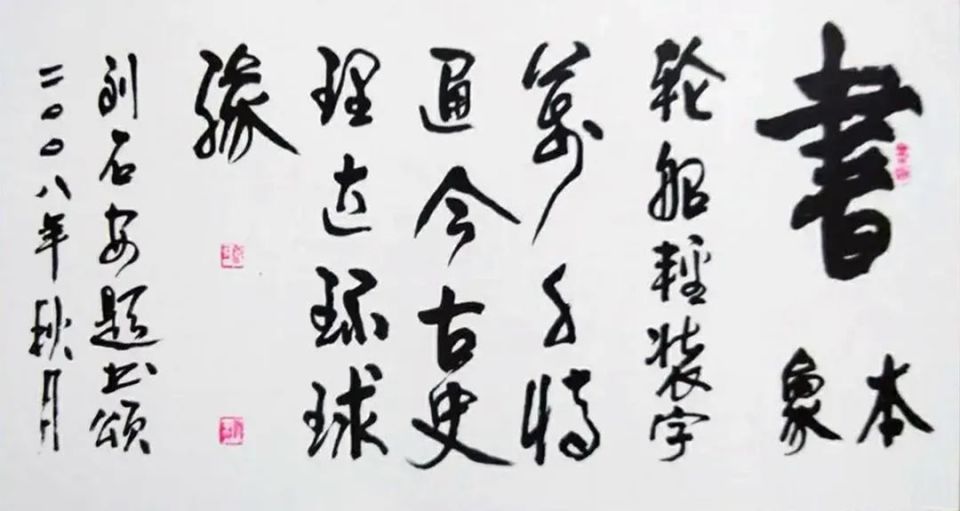 書
本象
轮船輕装字
萬千
通今古史
理达环球
石安题书颂
二〇〇八年秋月